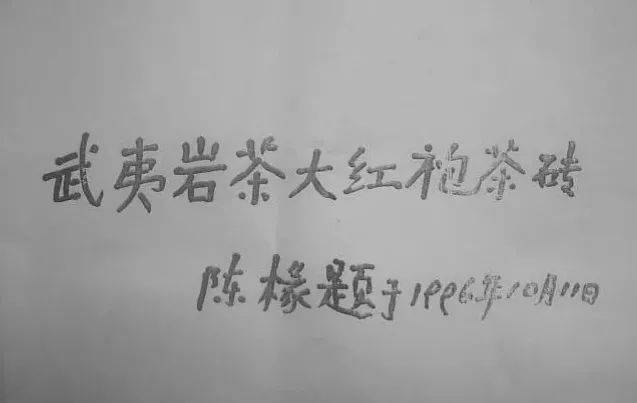 武夷岩茶大红袍茶砖
陈椽题于1996年10月11日